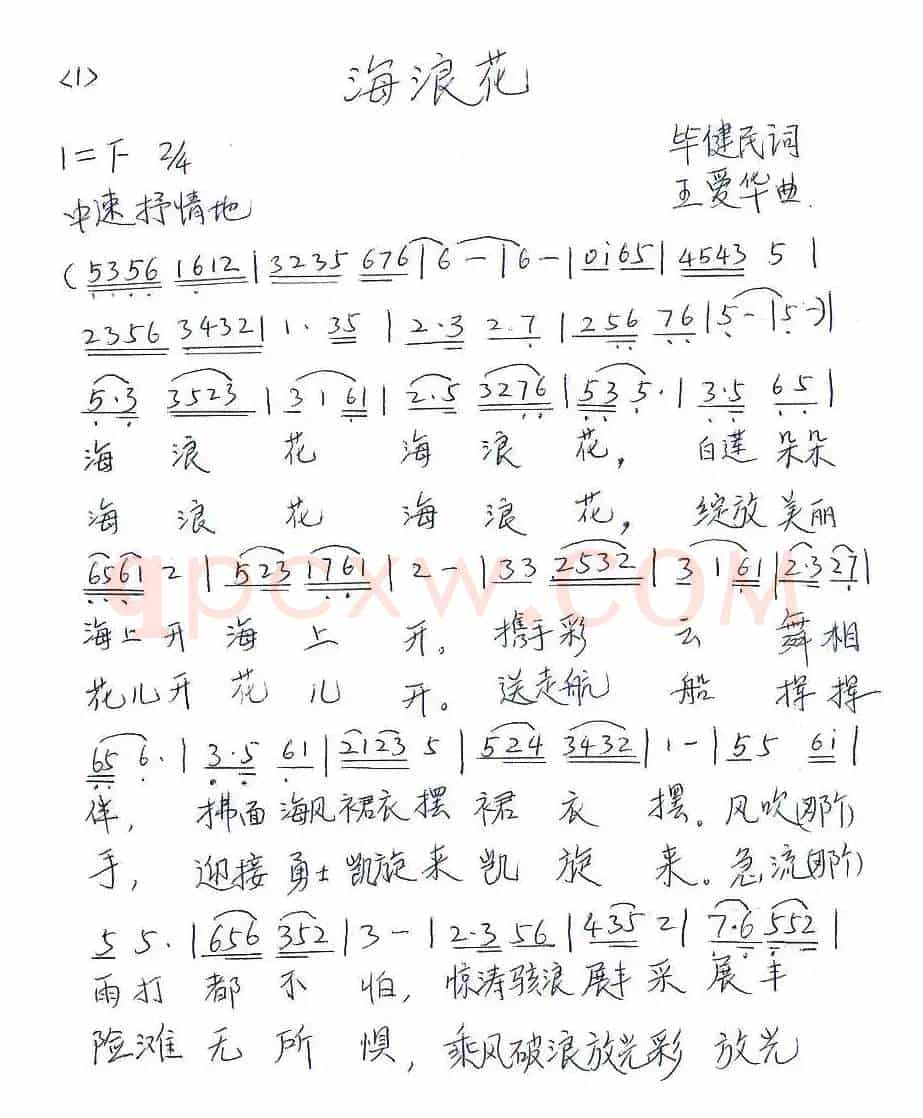 <1>
海浪花
毕健民词
1=下 2/4
王爱华曲.
中速 抒情地
(5356 1612|3235 676|6-|6-|0i65|4543 5|
2356 3432|1. 35|2.3 2.7|256 76|5-|5-)|
5.3 3523|3161|2.5 3276|535.|3.5 65|
海 浪 花 海 浪 花, 白莲 朵朵
海 浪 花 海 浪 花, 绽放 美丽
6561 2|523 1761|2-|33 2532|3 1 61|2.3 27|
qpcxw.com
海上开 海 上 开。携手彩 云 舞相
花儿开 花 儿 开。送走航 船 挥挥
65 6.|3.5 61|2123 5|524 3432|1-|55 6i|
伴, 拂面 海风裙衣 摆 裙 衣 摆。风吹(那个)
手, 迎接 勇士凯旋来 凯 旋 来。急流(那个)
5 5.|656 352|3-|2.3 56|435 2|7.6 552|
雨打 都 不 怕, 惊涛骇浪 展丰 采 展 丰
险滩 无 所 惧, 乘风破浪放光彩 放光